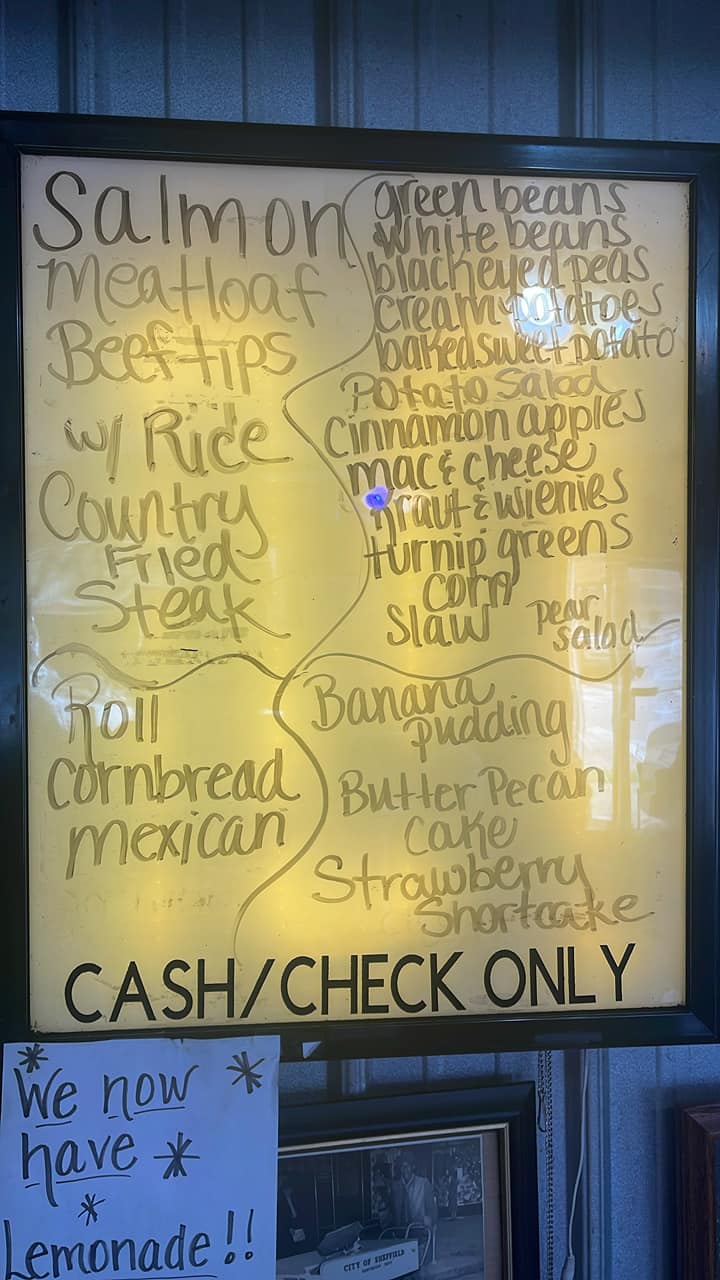 Salmon
Meatloaf
Beef tips
w/ Rice
Country
Fried
Steak
green beans
white beans
blackeyed peas
cream potatoes
baked sweet potato
Potato Salad
Cinnamon apples
mac & cheese
kraut & wienies
turnip greens
corn
slaw
pear
salad
Roll
cornbread
mexican
Banana
pudding
Butter Pecan
cake
Strawberry
Shortcake
CASH/CHECK ONLY
We now
have
Lemonade!!
CITY OF SHEFFIELD